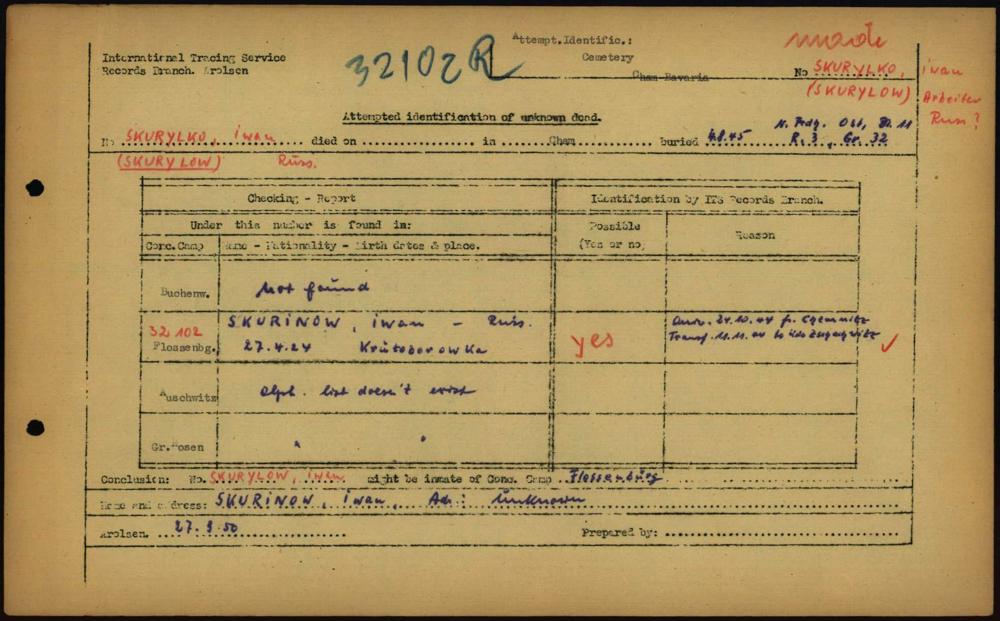 32102 R
Attempt.Identific.:
Cemetery
Cham-Bavaria
made
International Tracing Service
Records Branch. Arolsen
No SKURYLKO, iwan
(SKURYLOW) Arbeiter
Russ?
Attempted identification of unknown dead.
No SKURYLKO, iwan died on in Cham buried 4.8.45 R. 3, Gr. 32
(SKURYLOW) Russ.
Checking - Report
Identification by ITS Records Branch.
Under this number is found in:
Possible
(Yes or no)
Reason
Conc.Camp
Name - Nationality - Birth dates & place.
Buchenw. Not found
32 102 SKURINOW, iwan - Russ.
Flossenbg. 27.4.24 Krutoborowka
yes
24.10.44 fr. Chemnitz
Transf. 11.11.44 to
Auschwitz Alph. list doesn't exist
Gr.Rosen " "
Conclusion: No. SKURYLOW, iwan might be inmate of Conc. Camp Flossenbürg
Name and address: SKURINOW, iwan, Ad.: unknown
Arolsen. 27.9.50 Prepared by: